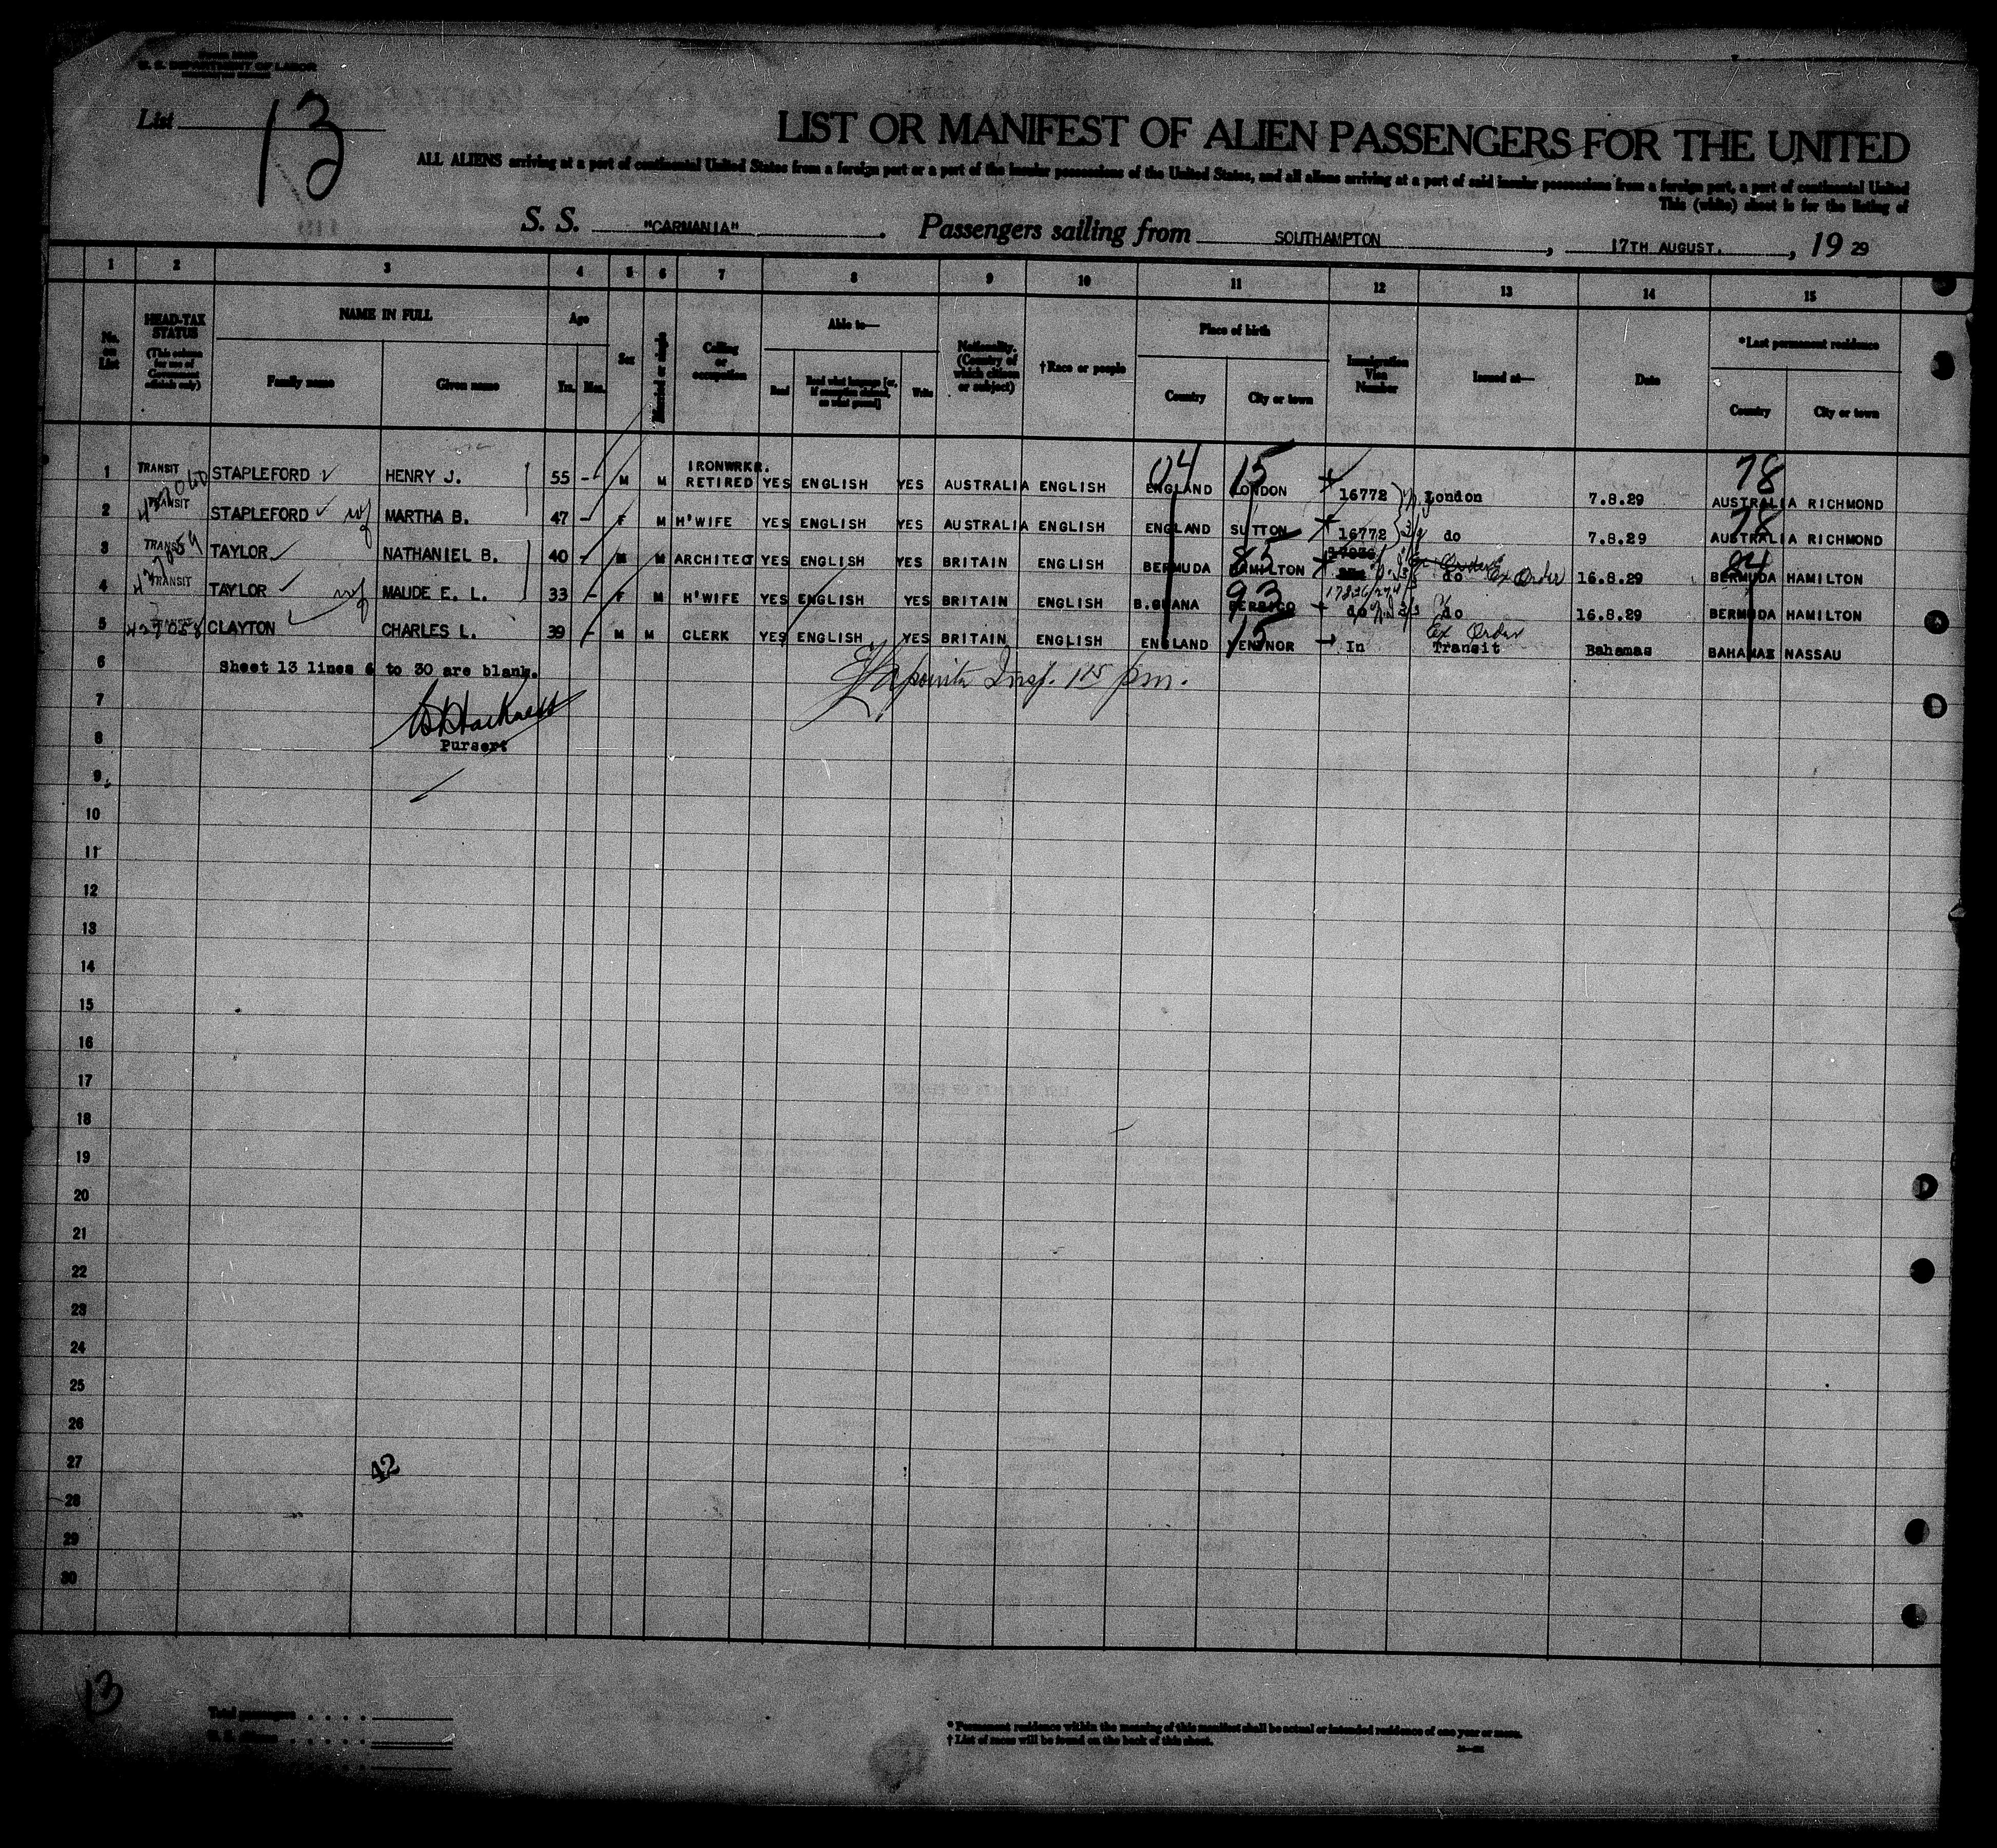 U. S. DEPARTMENT OF LABOR
List 13
LIST OR MANIFEST OF ALIEN PASSENGERS FOR THE UNITED
ALL ALIENS arriving at a port of continental United States from a foreign port or a port of the insular possessions of the United States, and all aliens arriving at a port of said insular possessions from a foreign port, a port of continental United
This (white) sheet is for the listing of
S. S. "CARMANIA". Passengers sailing from SOUTHAMPTON, 17TH AUGUST, 1929
1 2 3 4 5 6 7 8 9 10 11 12 13 14 15
No. on List
HEAD-TAX STATUS (This column for use of Government officials only)
NAME IN FULL Family name Given name
Age Yrs. Mos.
Sex
Married or single
Calling or occupation
Able to— Read Read what language [or, if exemption claimed, on what ground] Write
Nationality. (Country of which citizen or subject)
†Race or people
Place of birth Country City or town
Immigration Visa Number
Issued at—
Date
*Last permanent residence Country City or town
04 15 78
1 TRANSIT STAPLEFORD HENRY J. 55 - M M IRONWRKR. RETIRED YES ENGLISH YES AUSTRALIA ENGLISH ENGLAND LONDON 16772 London 7.8.29 AUSTRALIA RICHMOND
2 TRANSIT STAPLEFORD wf MARTHA B. 47 - F M H'WIFE YES ENGLISH YES AUSTRALIA ENGLISH ENGLAND SUTTON 16772 do 7.8.29 78 AUSTRALIA RICHMOND
3 TRANSIT TAYLOR NATHANIEL B. 40 - M M ARCHITECT YES ENGLISH YES BRITAIN ENGLISH BERMUDA 85 HAMILTON do Ex Order 16.8.29 84 BERMUDA HAMILTON
4 TRANSIT TAYLOR wf MAUDE E. L. 33 - F M H'WIFE YES ENGLISH YES BRITAIN ENGLISH B.GUIANA 93 do do 16.8.29 BERMUDA HAMILTON
5 427058 CLAYTON CHARLES L. 39 - M M CLERK YES ENGLISH YES BRITAIN ENGLISH ENGLAND 15 VENTNOR In Transit Ex Order Bahamas BAHAMAS NASSAU
6 Sheet 13 lines 6 to 30 are blank.
Insp. 1 15 pm.
7
8 Purser
9
10
11
12
13
13
14
15
16
17
18
19
20
21
22
23
24
25
26
27 42
28
29
30
13
Total passengers
* Permanent residence within the meaning of this manifest shall be actual or intended residence of one year or more.
† List of races will be found on the back of this sheet.